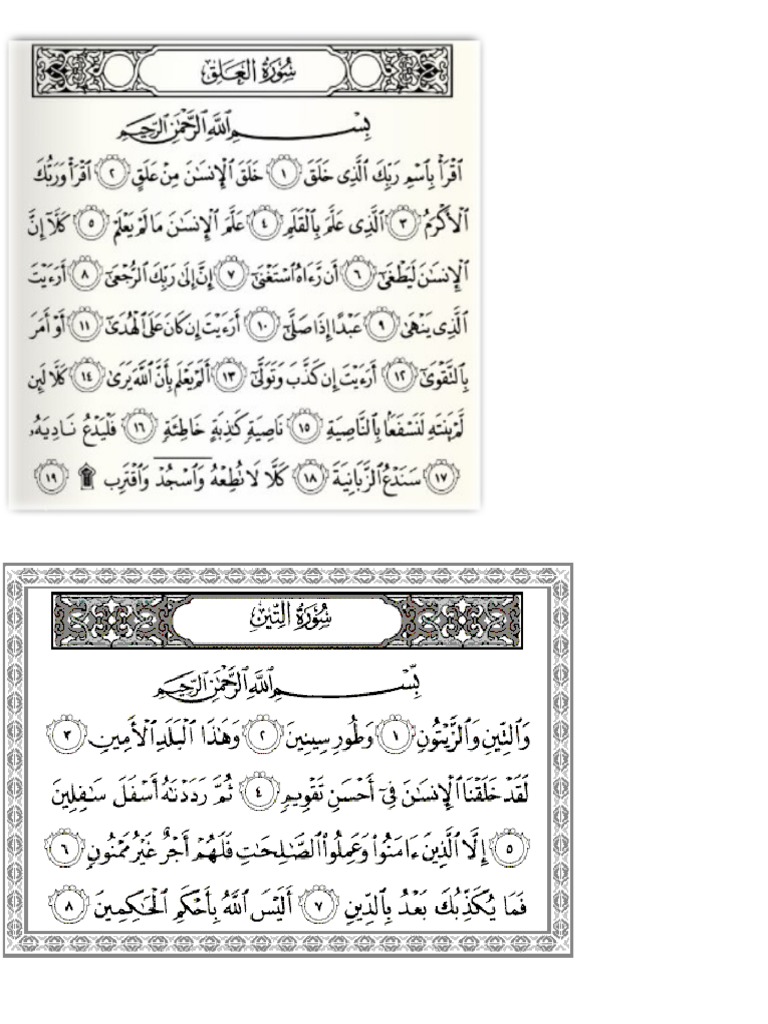 سُورَةُ العَلَقِ
بِسْمِ اللَّهِ الرَّحْمَٰنِ الرَّحِيمِ
ٱقْرَأْ بِٱسْمِ رَبِّكَ ٱلَّذِى خَلَقَ ١ خَلَقَ ٱلْإِنسَٰنَ مِنْ عَلَقٍ ٢ ٱقْرَأْ وَرَبُّكَ
ٱلْأَكْرَمُ ٣ ٱلَّذِى عَلَّمَ بِٱلْقَلَمِ ٤ عَلَّمَ ٱلْإِنسَٰنَ مَا لَمْ يَعْلَمْ ٥ كَلَّآ إِنَّ
ٱلْإِنسَٰنَ لَيَطْغَىٰٓ ٦ أَن رَّءَاهُ ٱسْتَغْنَىٰٓ ٧ إِنَّ إِلَىٰ رَبِّكَ ٱلرُّجْعَىٰٓ ٨ أَرَءَيْتَ
ٱلَّذِى يَنْهَىٰ ٩ عَبْدًا إِذَا صَلَّىٰٓ ١٠ أَرَءَيْتَ إِن كَانَ عَلَى ٱلْهُدَىٰٓ ١١ أَوْ أَمَرَ
بِٱلتَّقْوَىٰٓ ١٢ أَرَءَيْتَ إِن كَذَّبَ وَتَوَلَّىٰٓ ١٣ أَلَمْ يَعْلَم بِأَنَّ ٱللَّهَ يَرَىٰ ١٤ كَلَّا لَئِن
لَّمْ يَنتَهِ لَنَسْفَعًۢا بِٱلنَّاصِيَةِ ١٥ نَاصِيَةٍ كَٰذِبَةٍ خَاطِئَةٍ ١٦ فَلْيَدْعُ نَادِيَهُۥ
١٧ سَنَدْعُ ٱلزَّبَانِيَةَ ١٨ كَلَّا لَا تُطِعْهُ وَٱسْجُدْ وَٱقْتَرِب ۩ ١٩
سُورَةُ التِّينِ
بِسْمِ اللَّهِ الرَّحْمَٰنِ الرَّحِيمِ
وَٱلتِّينِ وَٱلزَّيْتُونِ ١ وَطُورِ سِينِينَ ٢ وَهَٰذَا ٱلْبَلَدِ ٱلْأَمِينِ ٣
لَقَدْ خَلَقْنَا ٱلْإِنسَٰنَ فِىٓ أَحْسَنِ تَقْوِيمٍ ٤ ثُمَّ رَدَدْنَٰهُ أَسْفَلَ سَٰفِلِينَ
٥ إِلَّا ٱلَّذِينَ ءَامَنُوا۟ وَعَمِلُوا۟ ٱلصَّٰلِحَٰتِ فَلَهُمْ أَجْرٌ غَيْرُ مَمْنُونٍ ٦
فَمَا يُكَذِّبُكَ بَعْدُ بِٱلدِّينِ ٧ أَلَيْسَ ٱللَّهُ بِأَحْكَمِ ٱلْحَٰكِمِينَ ٨